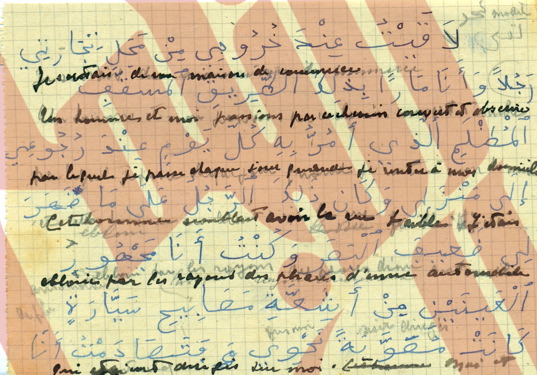 لاَ قَيْتُ عِنْدَ خُرُوجِي مِنْ مَحَلِّ تِجَارَتِي
Je sortais de ma maison de commerce
رَجُلاً وَأَنَا مَارًّا بِذَلِكَ الطَّرِيقِ المُسَقَّفِ
Un hommes et moi passions par ce chemin couvert et obscure
المُظْلِمِ الَّذِي أَمُرُّ بِهِ كُلَّ يَوْمٍ عِنْدَ رُجُوعِي
par lequel je passe chaque jour quand je rentre à mon domicile
إِلَى مَنْزِلِي وَكَانَ ذَلِكَ الرَّجُلُ عَلَى مَا ظَهَرَ
Cet homme semblait avoir la vue faible. J'étais
لِي ضَعِيفَ الْبَصَرِ وَكُنْتُ أَنَا مَجْهُورَ
ebloui par les rayons des phares d'une automobile
الْعَيْنَيْنِ مِنْ أَشِعَّةِ مَصَابِيحِ سَيَّارَةٍ
كَانَتْ مُصَوَّبَةً نَحْوِي فَتَصَادَمْتُ أَنَا
qui étaient dirigés sur moi. Cet homme et